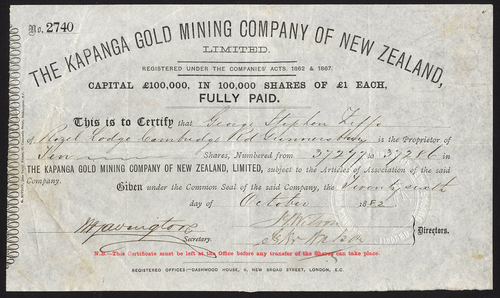 No. 2740
THE KAPANGA GOLD MINING COMPANY OF NEW ZEALAND,
LIMITED.
REGISTERED UNDER THE COMPANIES' ACTS, 1862 & 1867.
CAPITAL £100,000, IN 100,000 SHARES OF £1 EACH,
FULLY PAID.
This is to Certify that George Stephen
of Hazel Lodge Cambridge Rd Gunnersbury is the Proprietor of
Ten Shares, Numbered from 37277 to 37286 in
THE KAPANGA GOLD MINING COMPANY OF NEW ZEALAND, LIMITED, subject to the Articles of Association of the said
Company.
Given under the Common Seal of the said Company, the
day of October 1882
Secretary.
Directors.
N.B.—This Certificate must be left at the Office before any transfer of the Shares can take place.
REGISTERED OFFICES:—DASHWOOD HOUSE, 9, NEW BROAD STREET, LONDON, E.C.